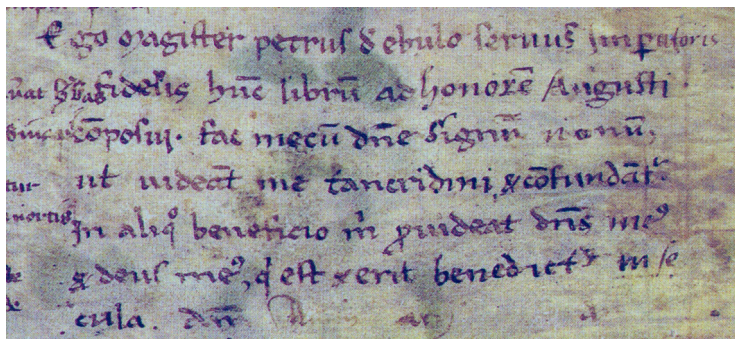 Ego magister petrus d̄ ebulo seruus imꝑatoris
⁊ fidelis hūc librū ad honorē Augusti
cōposui. fac mecū dn̄e signū
ut uideāt me tancridini ⁊ cōfundāt᷑.
In aliqᵒ beneficio m̄ ꝓuideat dn̄s meꝰ
⁊ deus meꝰ, q̇ est ⁊ erit benedictꝰ in se
cula.